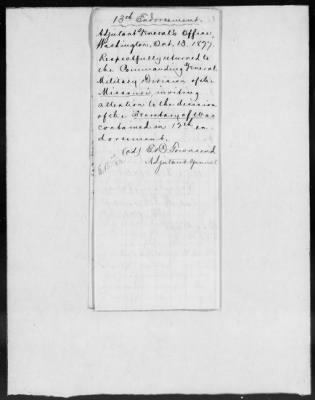 13th Endorsement.
Adjutant General's Office,
Washington, Oct. 13, 1877.
Respectfully returned to
the Commanding General
Military Division of the
Missouri, inviting
attention to the decision
of the Secretary of War
contained in 12th en-
dorsement.
(sd) E. D. Townsend
Adjutant General